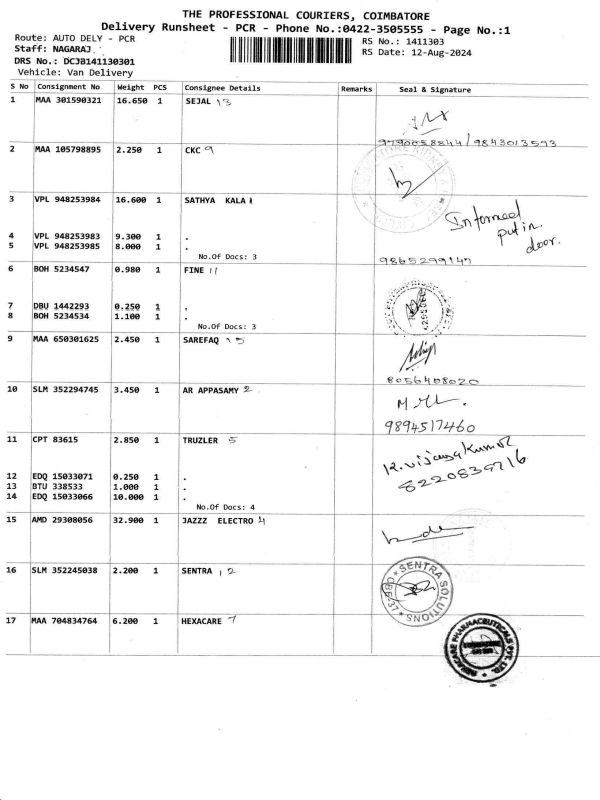 THE PROFESSIONAL COURIERS, COIMBATORE
Delivery Runsheet - PCR - Phone No.:0422-3505555 - Page No.:1
Route: AUTO DELY - PCR
RS No.: 1411303
Staff: NAGARAJ.
RS Date: 12-Aug-2024
DRS No.: DCJB141130301
Vehicle: Van Delivery
S No Consignment No Weight PCS Consignee Details Remarks Seal & Signature
1 MAA 301590321 16.650 1 SEJAL 13
9790058844/9843013593
2 MAA 105798895 2.250 1 CKC 9
3 VPL 948253984 16.600 1 SATHYA KALA 1
Informed
put in
door.
4 VPL 948253983 9.300 1 .
5 VPL 948253985 8.000 1 .
No.Of Docs: 3
9865299147
6 BOH 5234547 0.980 1 FINE 11
7 DBU 1442293 0.250 1 .
8 BOH 5234534 1.100 1 .
No.Of Docs: 3
9 MAA 650301625 2.450 1 SAREFAQ 15
8056408020
10 SLM 352294745 3.450 1 AR APPASAMY 2
9894517460
11 CPT 83615 2.850 1 TRUZLER 5
K.vijayakumar
8220839716
12 EDQ 15033071 0.250 1 .
13 BTU 338533 1.000 1 .
14 EDQ 15033066 10.000 1 .
No.Of Docs: 4
15 AMD 29308056 32.900 1 JAZZZ ELECTRO 4
16 SLM 352245038 2.200 1 SENTRA 12
SENTRA SOLUTIONS
17 MAA 704834764 6.200 1 HEXACARE 7
PHARMACEUTICALS PVT. LTD.